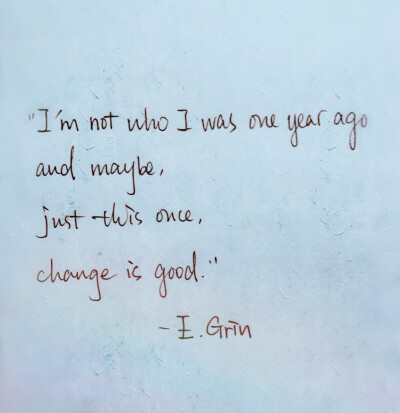 "I'm not who I was one year ago
and maybe,
just this once,
change is good."
- E. Grin